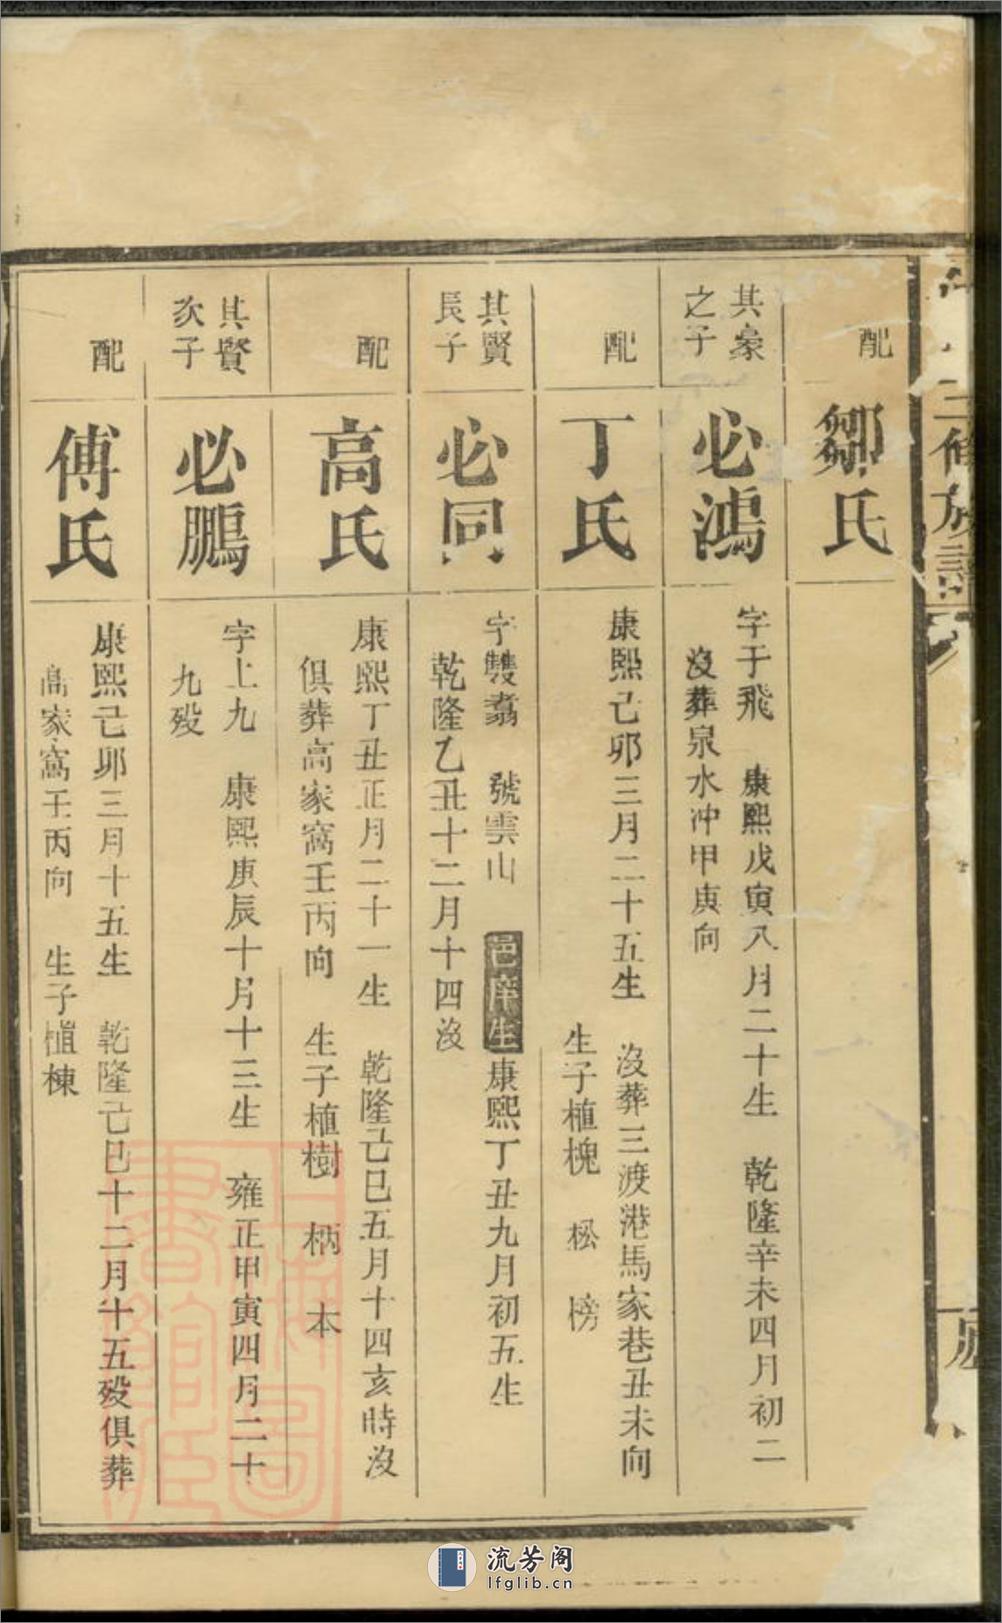 三修族譜
配
鄒氏
其豪
之子
必鴻
字于飛 康熙戊寅八月二十生 乾隆辛未四月初二
沒葬泉水冲甲庚向
配
丁氏
康熙己卯三月二十五生 沒葬三渡港馬家巷丑未向
生子植槐 松 榜
其賢
長子
必同
字雙翥 號雲山 邑庠生康熙丁丑九月初五生
乾隆乙丑十二月十四沒
配
高氏
康熙丁丑正月二十一生 乾隆己巳五月十四亥時沒
俱葬高家窩壬丙向 生子植樹 柄 本
其賢
次子
必鵬
字上九 康熙庚辰十月十三生 雍正甲寅四月二十
九歿
配
傅氏
康熙己卯三月十五生 乾隆己巳十二月十五歿俱葬
高家窩壬丙向 生子植棟
上海圖
書館藏
流芳阁
lfglib.cn